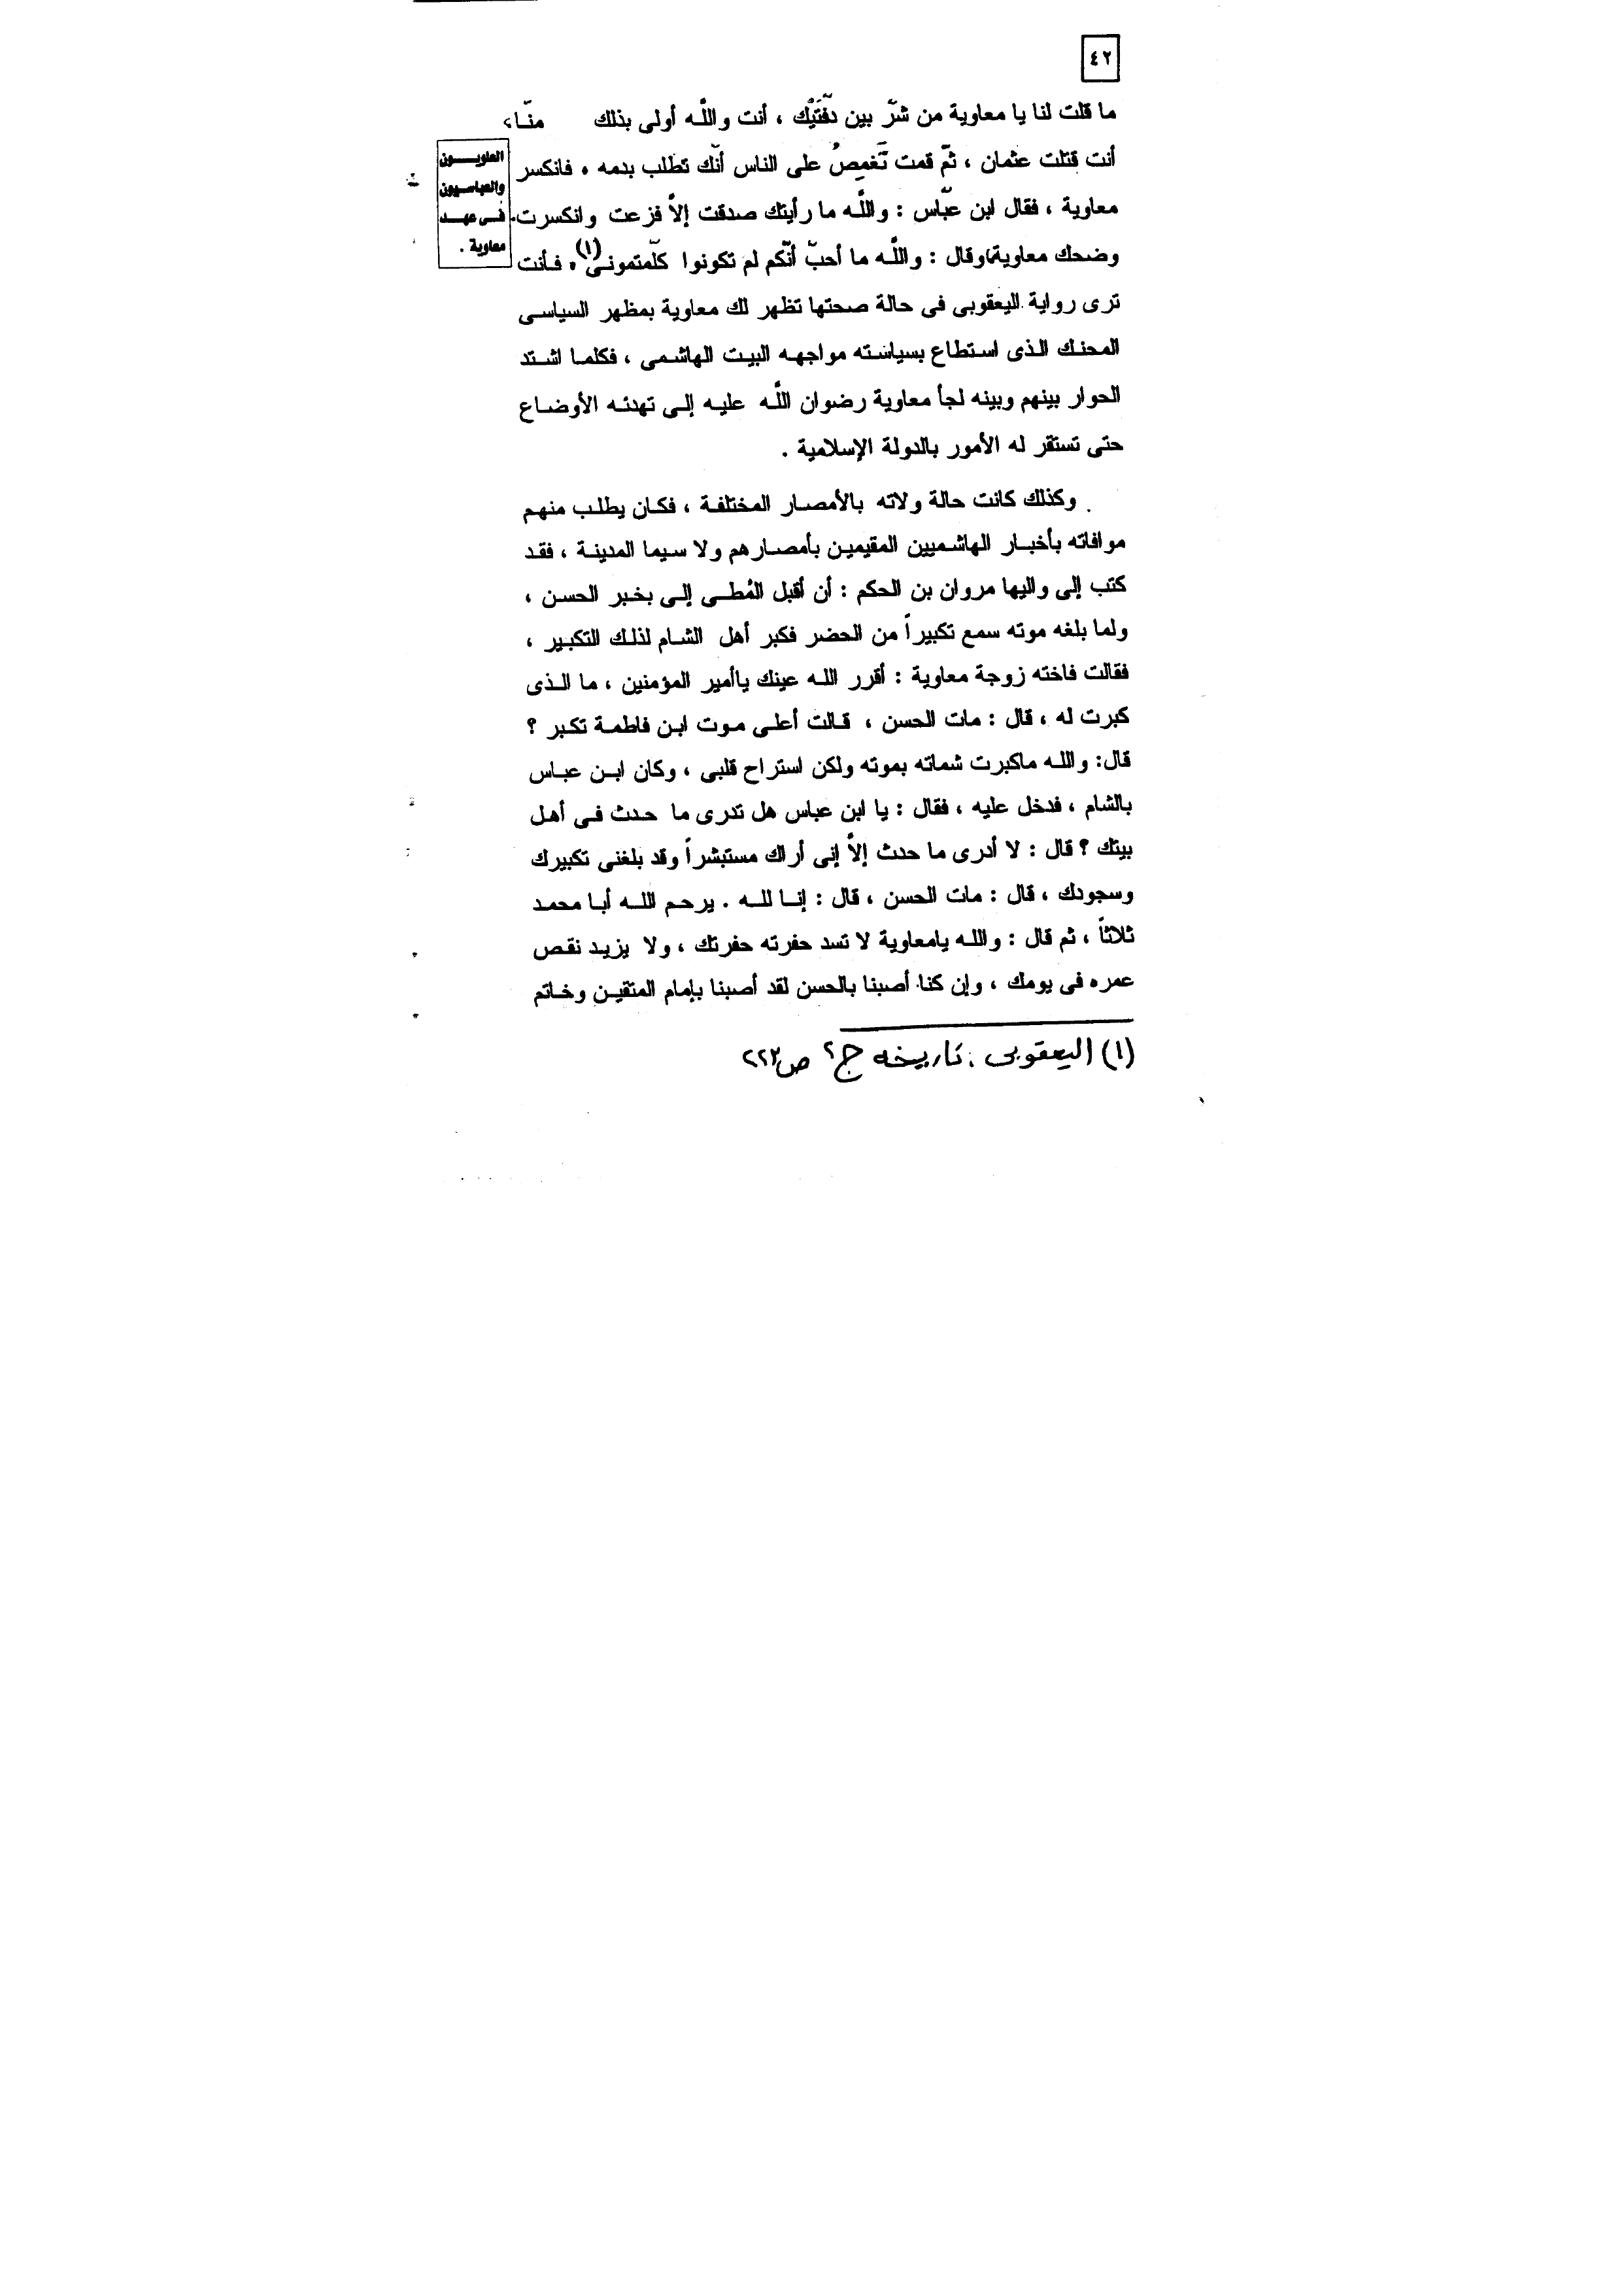 ٤٢
ما قلت لنا يا معاوية من شرّ بين دفّتَيْك ، أنت واللَّه أولى بذلك منّا،
أنت قتلت عثمان ، ثمّ قمت تَغمِصُ على الناس أنّك تطلب بدمه . فانكسر
معاوية ، فقال ابن عبّاس : واللَّه ما رأيتك صدقت إلاَّ فزعت وانكسرت.
وضحك معاوية، وقال : واللَّه ما أحبّ أنّكم لم تكونوا كلّمتمونى(١) . فأنت
ترى رواية اليعقوبى فى حالة صحتها تظهر لك معاوية بمظهر السياسى
المحنك الذى استطاع بسياسته مواجهه البيت الهاشمى ، فكلما اشتد
الحوار بينهم وبينه لجأ معاوية رضوان اللَّه عليه إلى تهدئه الأوضاع
حتى تستقر له الأمور بالدولة الإسلامية .
العلويون
والعباسيون
فى عهد
معاوية .
وكذلك كانت حالة ولاته بالأمصار المختلفة ، فكان يطلب منهم
موافاته بأخبار الهاشميين المقيمين بأمصارهم ولا سيما المدينة ، فقد
كتب إلى واليها مروان بن الحكم : أن أقبل المُطى إلى بخبر الحسن ،
ولما بلغه موته سمع تكبيراً من الحضر فكبر أهل الشام لذلك التكبير ،
فقالت فاخته زوجة معاوية : أقرر الله عينك ياأمير المؤمنين ، ما الذى
كبرت له ، قال : مات الحسن ، قالت أعلى موت ابن فاطمة تكبر ؟
قال: والله ماكبرت شماته بموته ولكن استراح قلبى ، وكان ابن عباس
بالشام ، فدخل عليه ، فقال : يا ابن عباس هل تدرى ما حدث فى أهل
بيتك ؟ قال : لا أدرى ما حدث إلاَّ إنى أراك مستبشراً وقد بلغنى تكبيرك
وسجودك ، قال : مات الحسن ، قال : إنا لله . يرحم الله أبا محمد
ثلاثاً ، ثم قال : والله يامعاوية لا تسد حفرته حفرتك ، ولا يزيد نقص
عمره فى يومك ، وإن كنا أصبنا بالحسن لقد أصبنا بإمام المتقين وخاتم
(١) اليعقوبى : تاريخه ج٢ ص٢٢٣